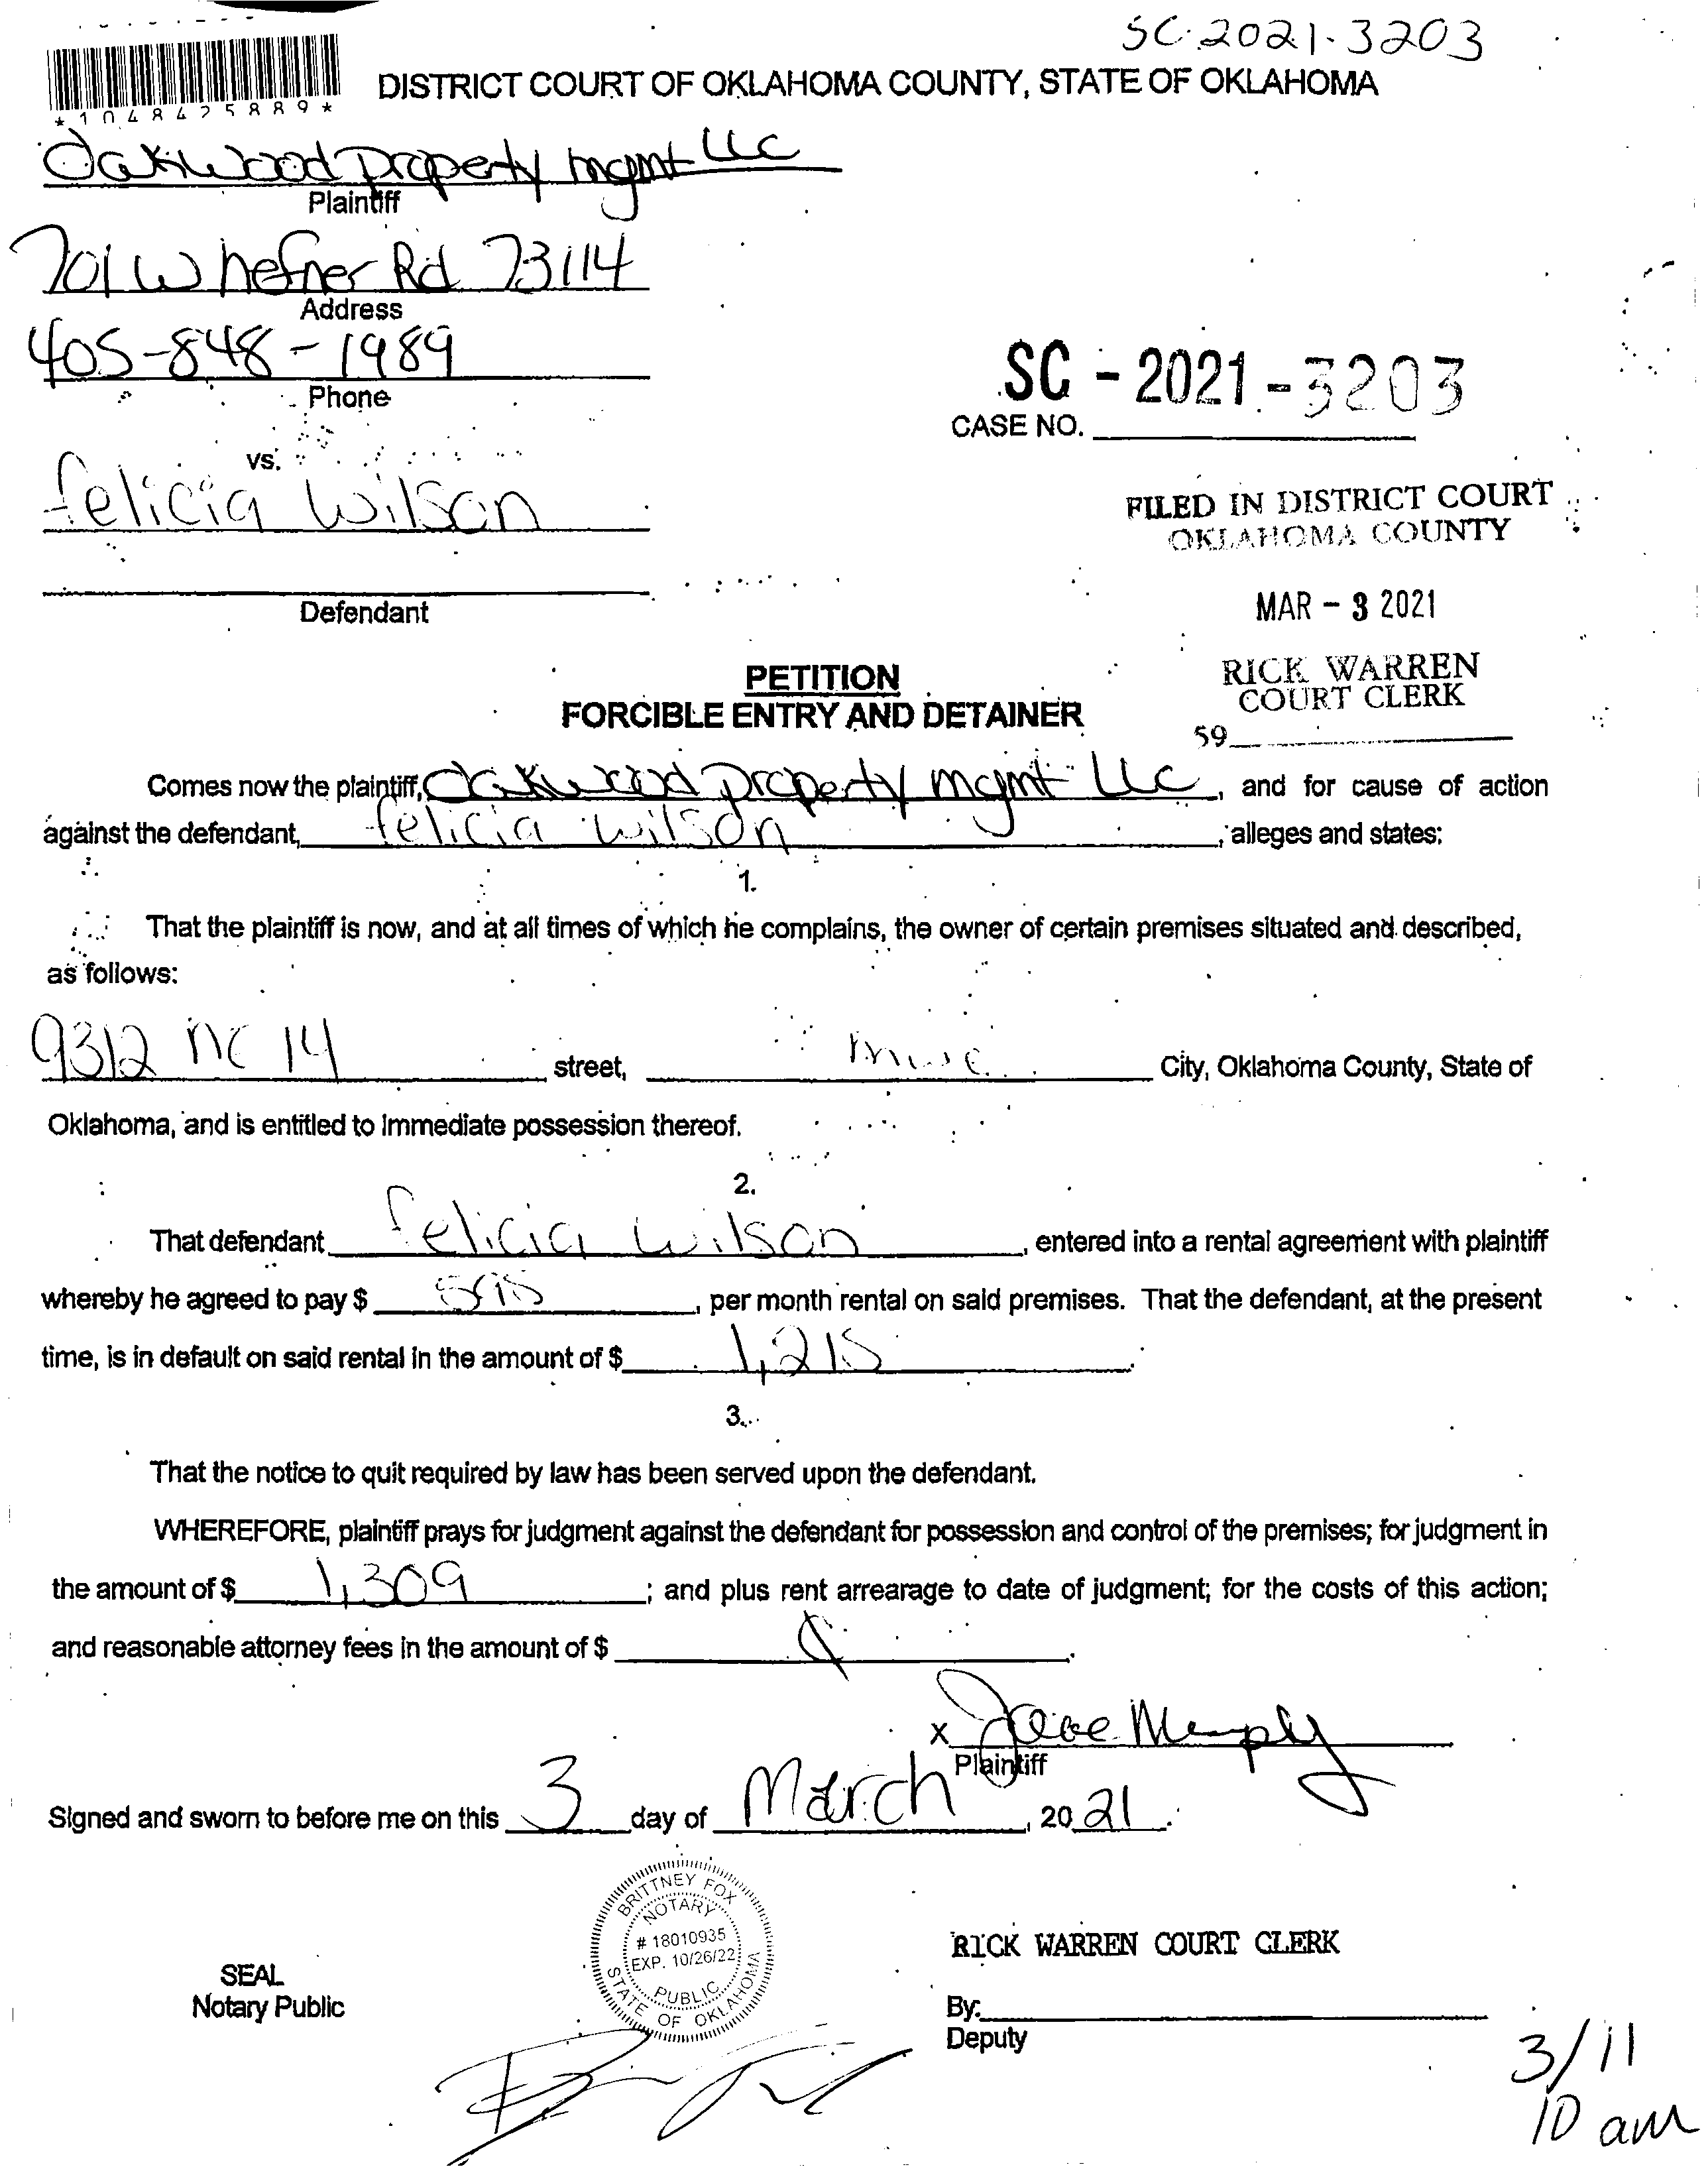 SC-2021-3203
*1048425889*
DISTRICT COURT OF OKLAHOMA COUNTY, STATE OF OKLAHOMA
Oakwood property mgmt LLC
Plaintiff
701 W hefner Rd 73114
Address
405-848-1989
Phone
SC - 2021 - 3203
CASE NO.
vs.
felicia wilson
FILED IN DISTRICT COURT
OKLAHOMA COUNTY
Defendant
MAR - 3 2021
RICK WARREN
COURT CLERK
59
PETITION
FORCIBLE ENTRY AND DETAINER
Comes now the plaintiff, Oakwood property mgmt LLC, and for cause of action
against the defendant, felicia wilson, alleges and states:
1.
That the plaintiff is now, and at all times of which he complains, the owner of certain premises situated and described,
as follows:
9312 ne 14 street, mwc City, Oklahoma County, State of
Oklahoma, and is entitled to immediate possession thereof.
2.
That defendant felicia wilson, entered into a rental agreement with plaintiff
whereby he agreed to pay $ 595, per month rental on said premises. That the defendant, at the present
time, is in default on said rental in the amount of $ 1,215.
3.
That the notice to quit required by law has been served upon the defendant.
WHEREFORE, plaintiff prays for judgment against the defendant for possession and control of the premises; for judgment in
the amount of $ 1,309; and plus rent arrearage to date of judgment; for the costs of this action;
and reasonable attorney fees in the amount of $
x
Plaintiff
Signed and sworn to before me on this 3 day of March, 2021.
BRITTNEY FOX
NOTARY
# 18010935
EXP. 10/26/22
PUBLIC
STATE OF OKLAHOMA
SEAL
Notary Public
RICK WARREN COURT CLERK
By:
Deputy
3/11
10 am